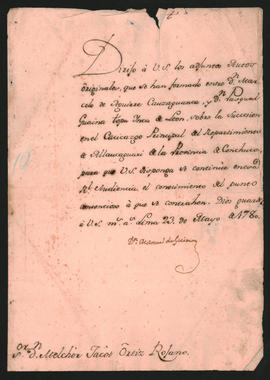 Dirijo á V.S. los adjuntos Autos
originales, que se han formado entre Dn. Marcelo de Aguirre
y Dn. Pasqual
Guaina Topa Inca de Leon, sobre la Succesion
en el Cacicazgo Principal del Repartimiento
de la Provincia de Conchucos,
para que V.S. disponga se continúe en esa
Rl. Audiencia el conocimiento del punto
contencioso á que se contrahen. Dios guarde
á V.S. ms. as. Lima 23. de Mayo de 1780.
Sor. Dn. Melchor Jacot Ortiz Rojano.